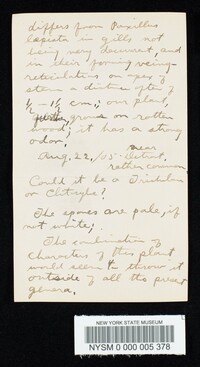 differs from Paxillus
in gills not
being very decurrent, and
in their forming vein-
reticulations on apex of
stem a distance often of
1/2 - 1 1/2 cm.; our plant,
grows on rotten
wood; it has a strong
odor.
near
Aug. 22, '05 - Detroit,
rather common.
Could it be a
or Clitocybe?
The spores are pale, if
not white;
The combination of
characters of this plant
would seem to throw it
outside of all the present
genera.
NEW YORK STATE MUSEUM
NYSM 0 000 005 378